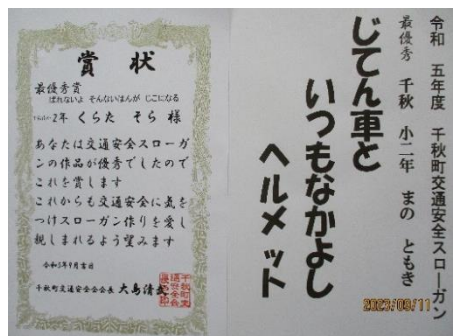 賞状
最優秀賞
ばれないよ そんないまんが じこになる
2年 くらた そら 様
あなたは交通安全スローガ
ンの作品が優秀でしたので
これを賞します
これからも交通安全に気を
つけスローガン作りを愛し
親しまれるよう望みます
令和5年9月吉日
千秋町交通安全会会長 大島清
令和 五年度 千秋町交通安全スローガン
最優秀 千秋 小二年 まの ともき
じてん車と
いつもなかよし
ヘルメット
2023/09/11